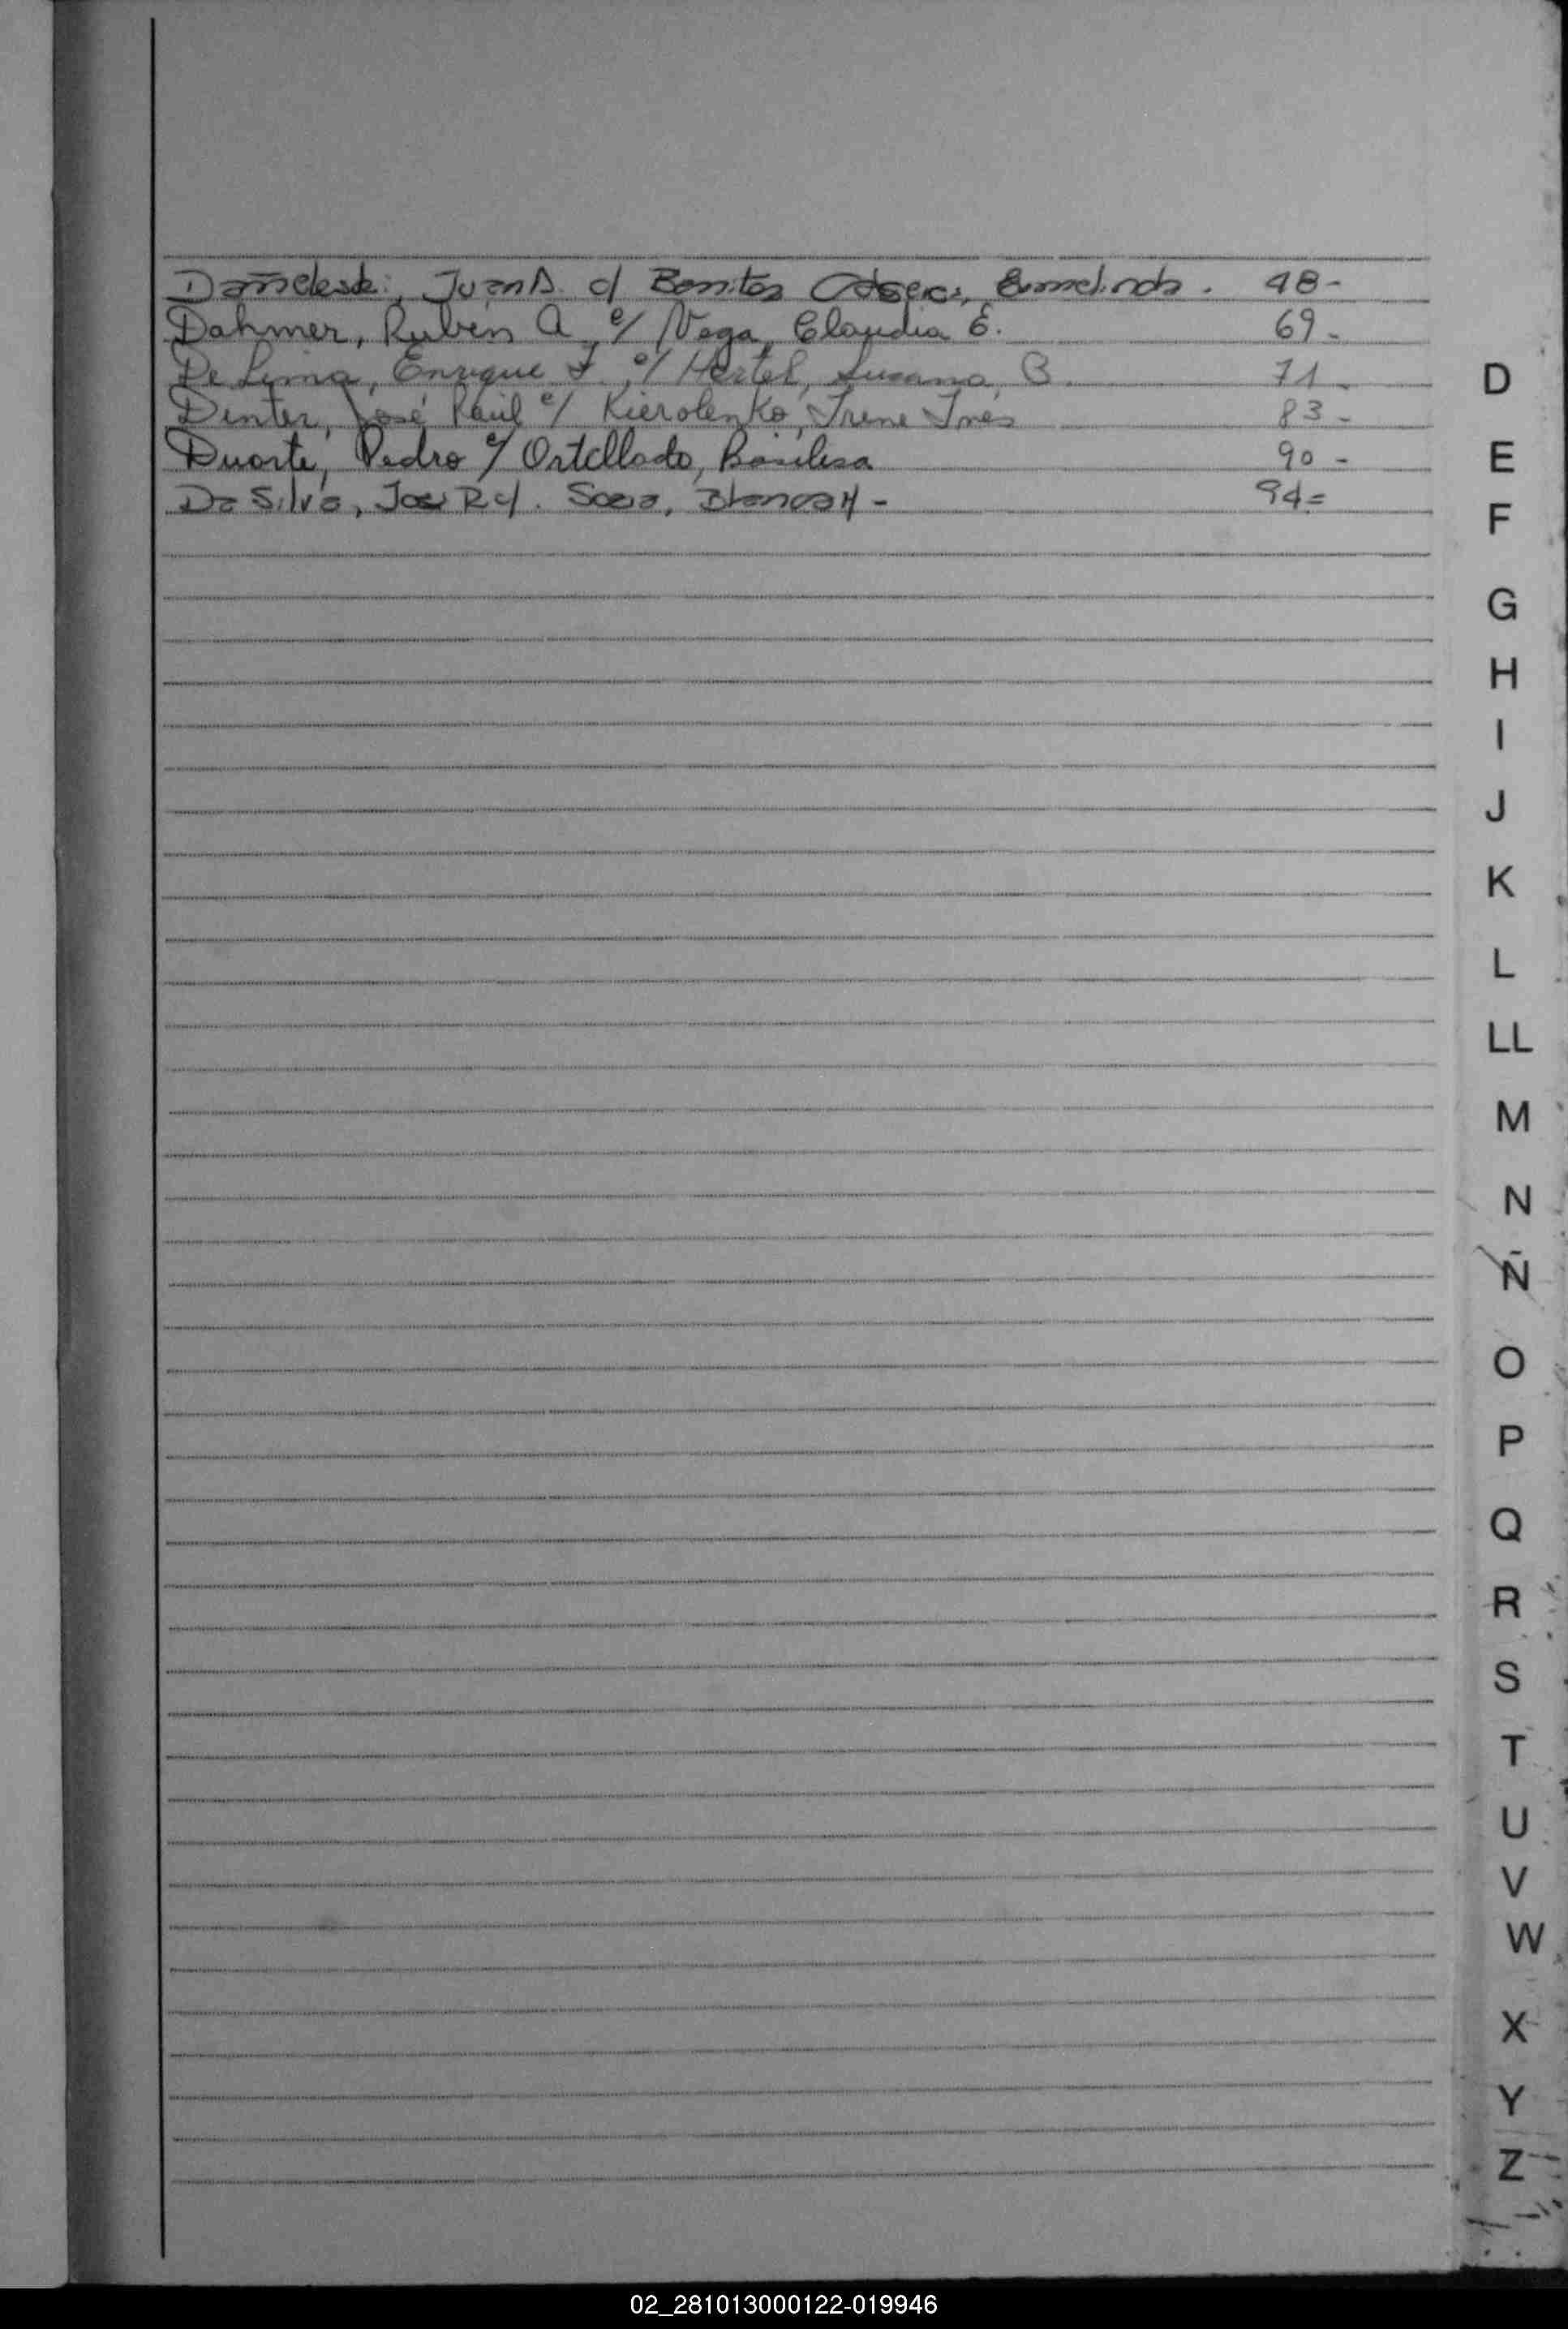 Juan A. c/ Benitez 48-
Dahmer, Rubén A. c/ Vega, Claudia E. 69-
De Lima, Enrique F. c/ Hertel, Susana B. 71-
Dinter, José Raúl c/ Kierolenko, Irene Inés 83-
Duarte, Pedro c/ Ortellado, Basilisa 90-
Da Silva, José R c/. Sosa, Blanca H- 94=
D
E
F
G
H
I
J
K
L
LL
M
N
Ñ
O
P
Q
R
S
T
U
V
W
X
Y
Z
02_281013000122-019946